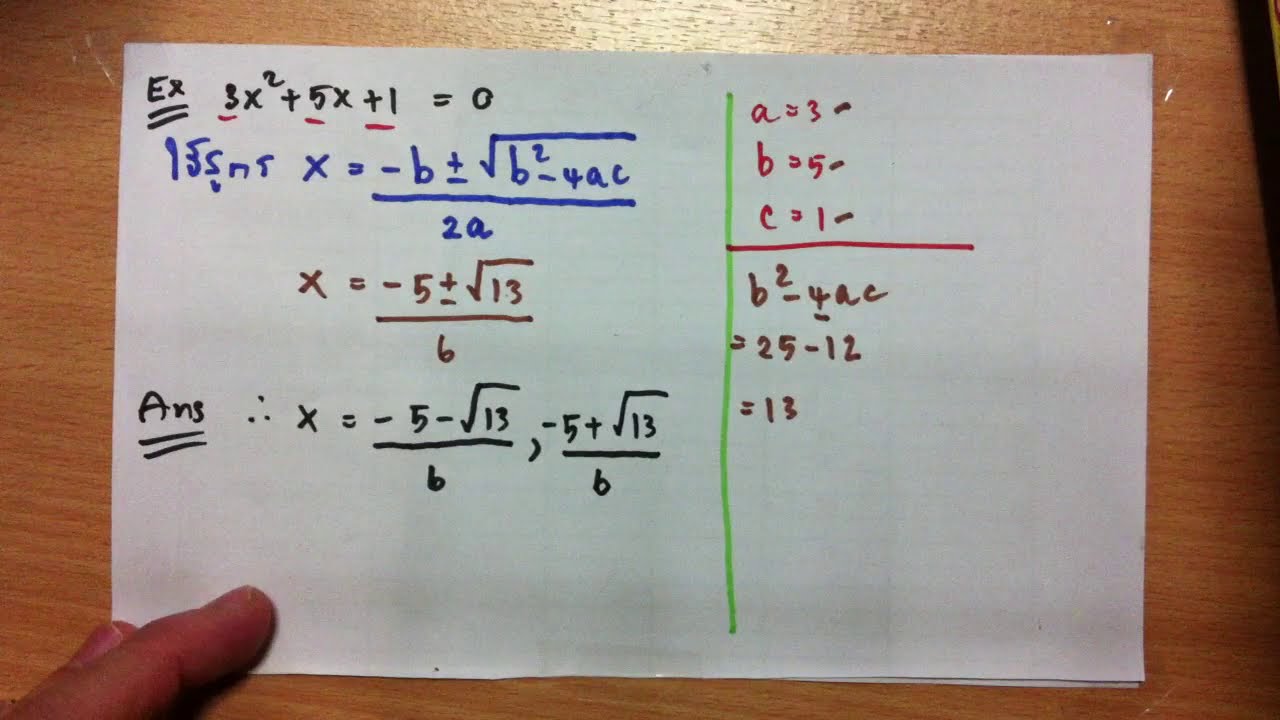 Ex 3x² + 5x + 1 = 0
ใช้สูตร x = (-b ± √(b² - 4ac)) / 2a
x = (-5 ± √13) / 6
Ans ∴ x = (-5 - √13) / 6 , (-5 + √13) / 6
a = 3
b = 5
c = 1
b² - 4ac
= 25 - 12
= 13